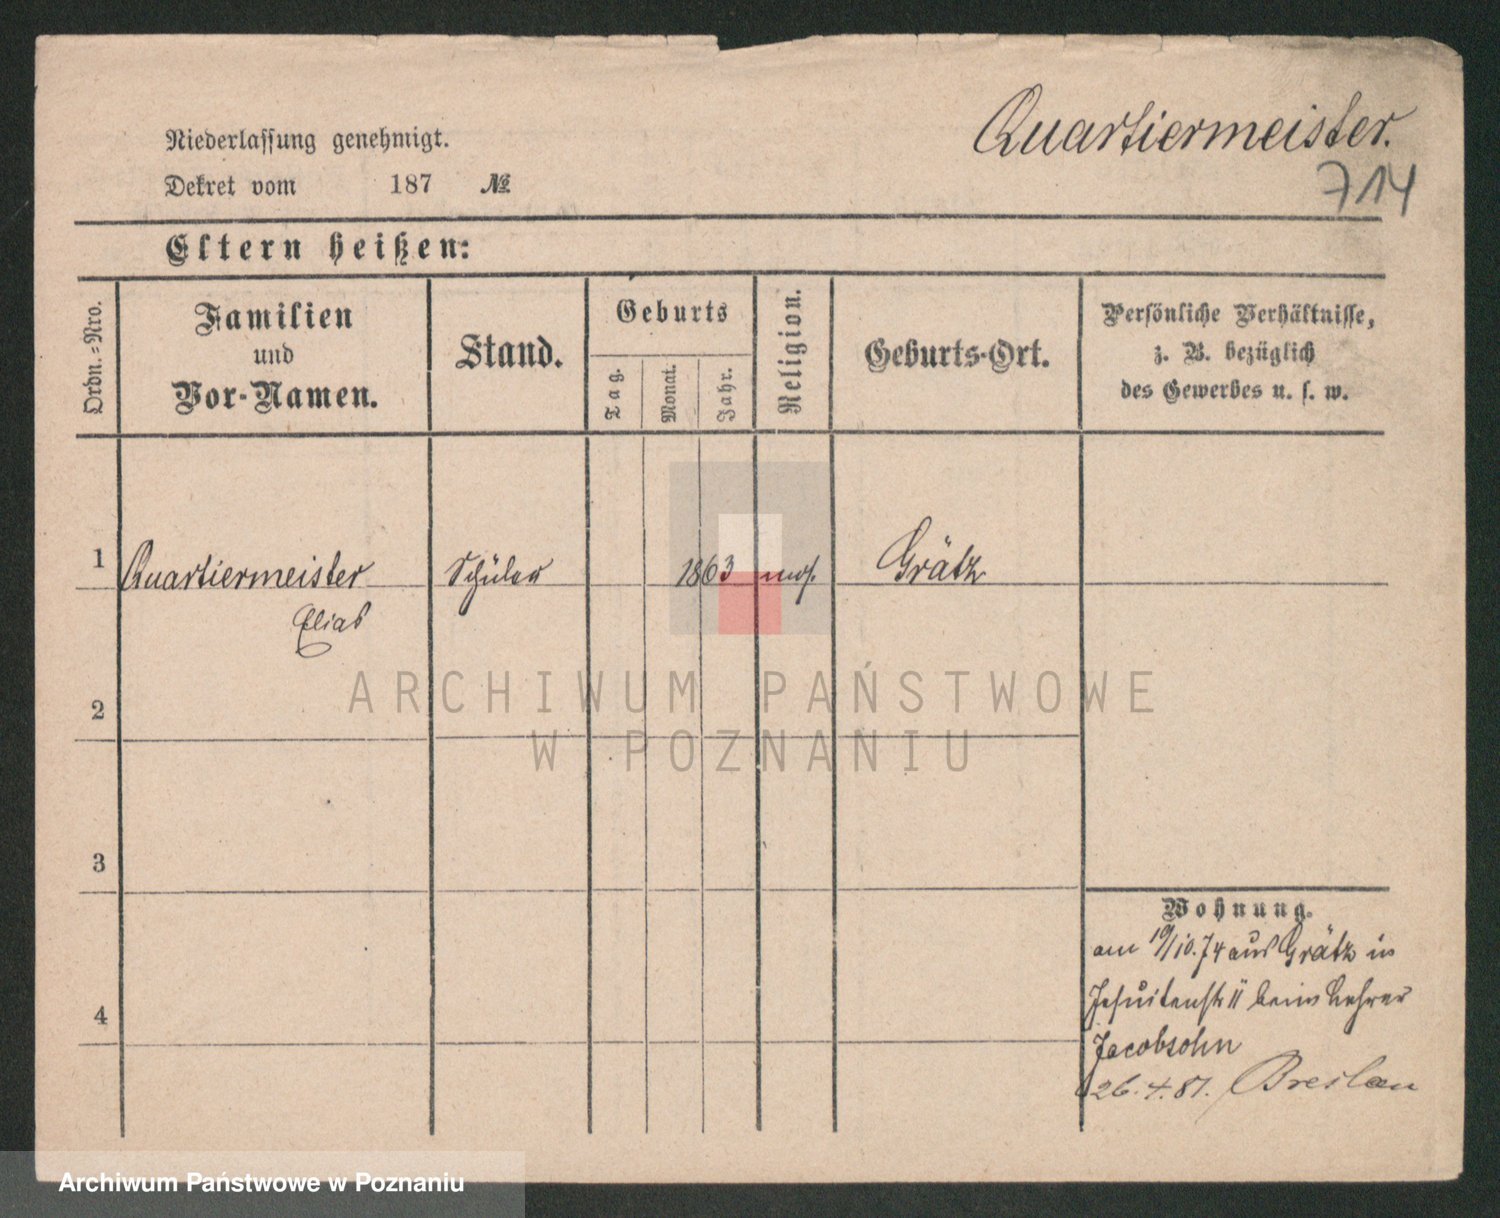 Quartiermeister.
714
Niederlassung genehmigt.
Dekret vom 187 №
Eltern heißen:
Ordn.=Nro.
Familien
und
Vor-Namen.
Stand.
Geburts
Tag.
Monat.
Jahr.
Religion.
Geburts-Ort.
Persönliche Verhältnisse,
z. B. bezüglich
des Gewerbes u. s. w.
1 Quartiermeister Schüler 1863 mos. Grätz
Elias
2
3
4
Wohnung.
am 19/10.74 aus Grätz in
Jesuitenstr 11 beim Lehrer
Jacobsohn
26.4.81. Breslau
ARCHIWUM PAŃSTWOWE
W POZNANIU
Archiwum Państwowe w Poznaniu